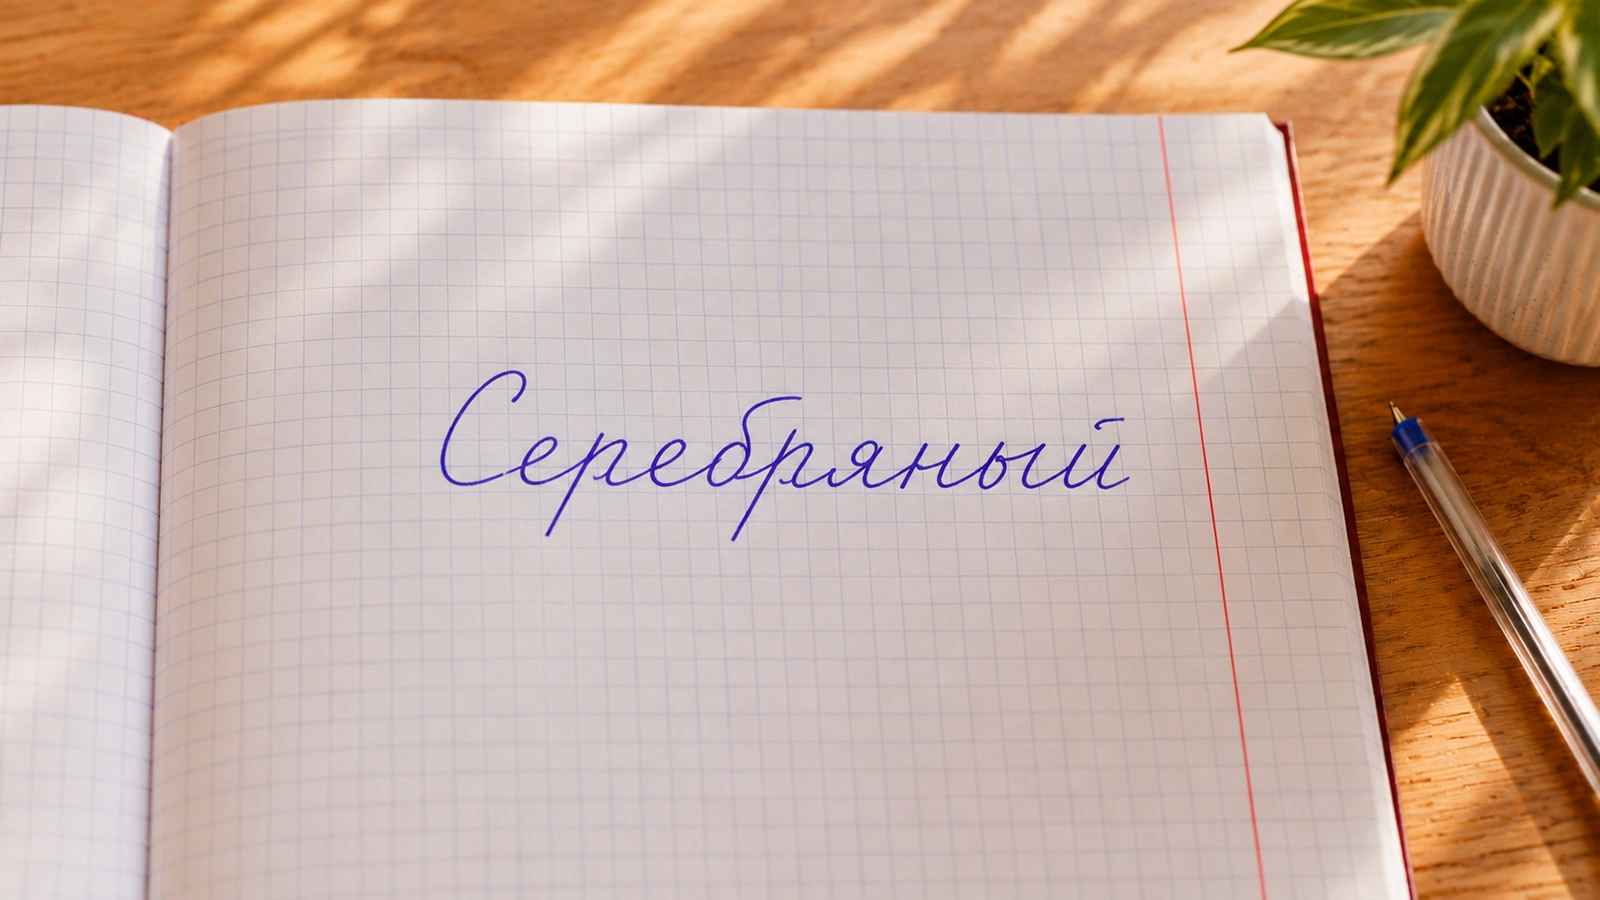 Серебряный